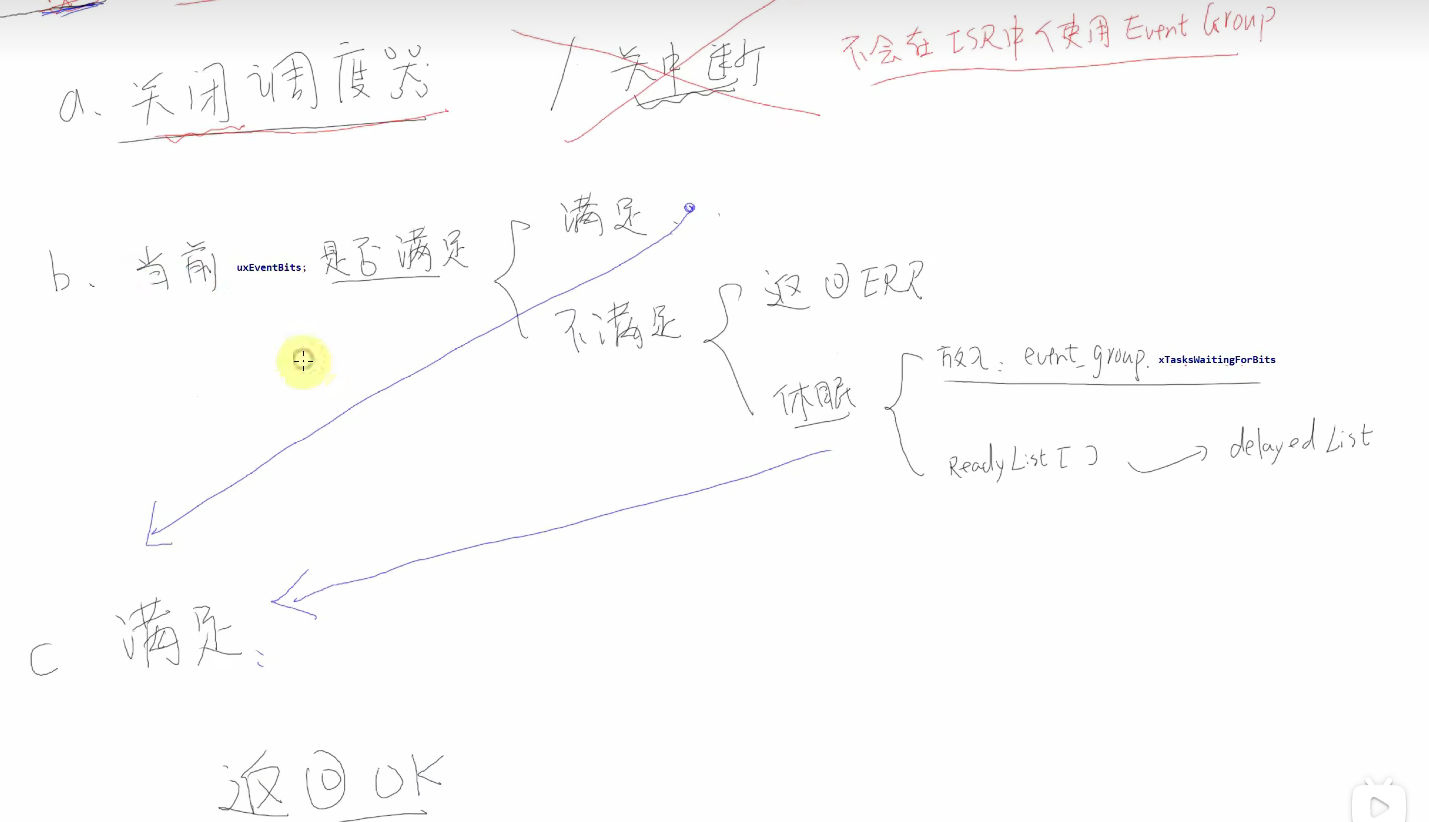 a、关闭调度器 / 关中断 不会在ISR中使用Event Group
b、当前 uxEventBits; 是否满足
满足
不满足
返回ERR
休眠
放入: event_group. xTasksWaitingForBits
ReadyList[] → delayed List
c 满足:
返回OK